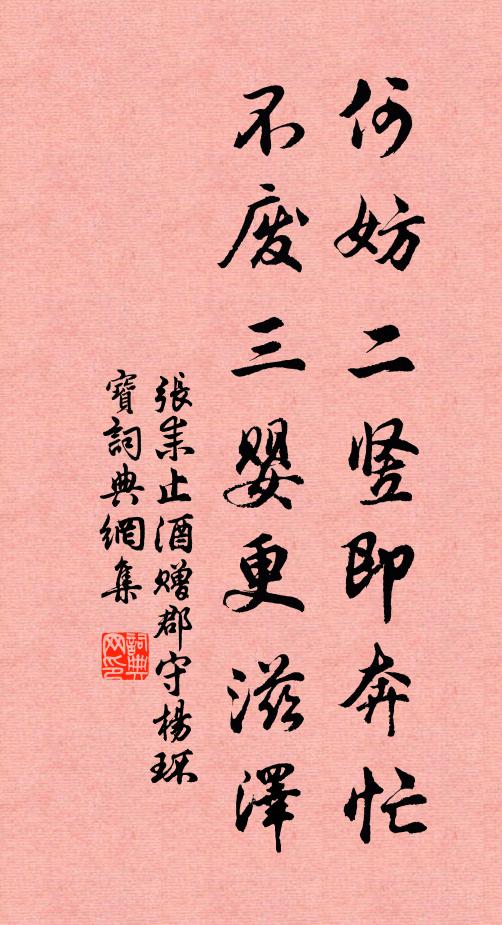 何妨二竖即奔忙
不废三婴更滋澤
張耒止酒贈郡守楊环
寶詞典網集
詞典网印